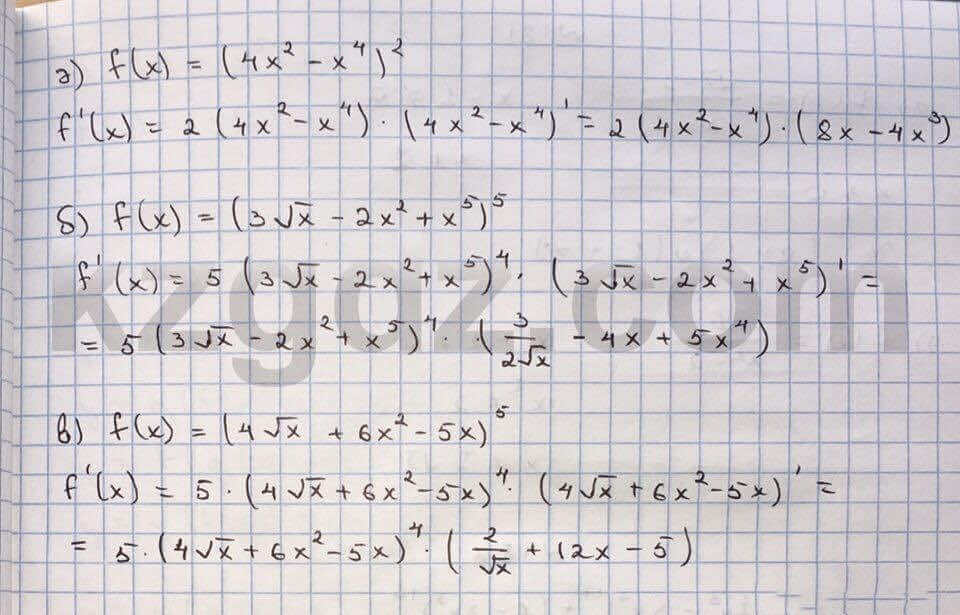 а) f(x) = (4x² - x⁴)²
f'(x) = 2(4x² - x⁴) · (4x² - x⁴)' = 2(4x² - x⁴) · (8x - 4x³)
б) f(x) = (3√x - 2x² + x⁵)⁵
f'(x) = 5(3√x - 2x² + x⁵)⁴ · (3√x - 2x² + x⁵)' =
= 5(3√x - 2x² + x⁵)⁴ · (3/(2√x) - 4x + 5x⁴)
kzgdz.com
в) f(x) = (4√x + 6x² - 5x)⁵
f'(x) = 5 · (4√x + 6x² - 5x)⁴ · (4√x + 6x² - 5x)' =
= 5 · (4√x + 6x² - 5x)⁴ · (2/√x + 12x - 5)